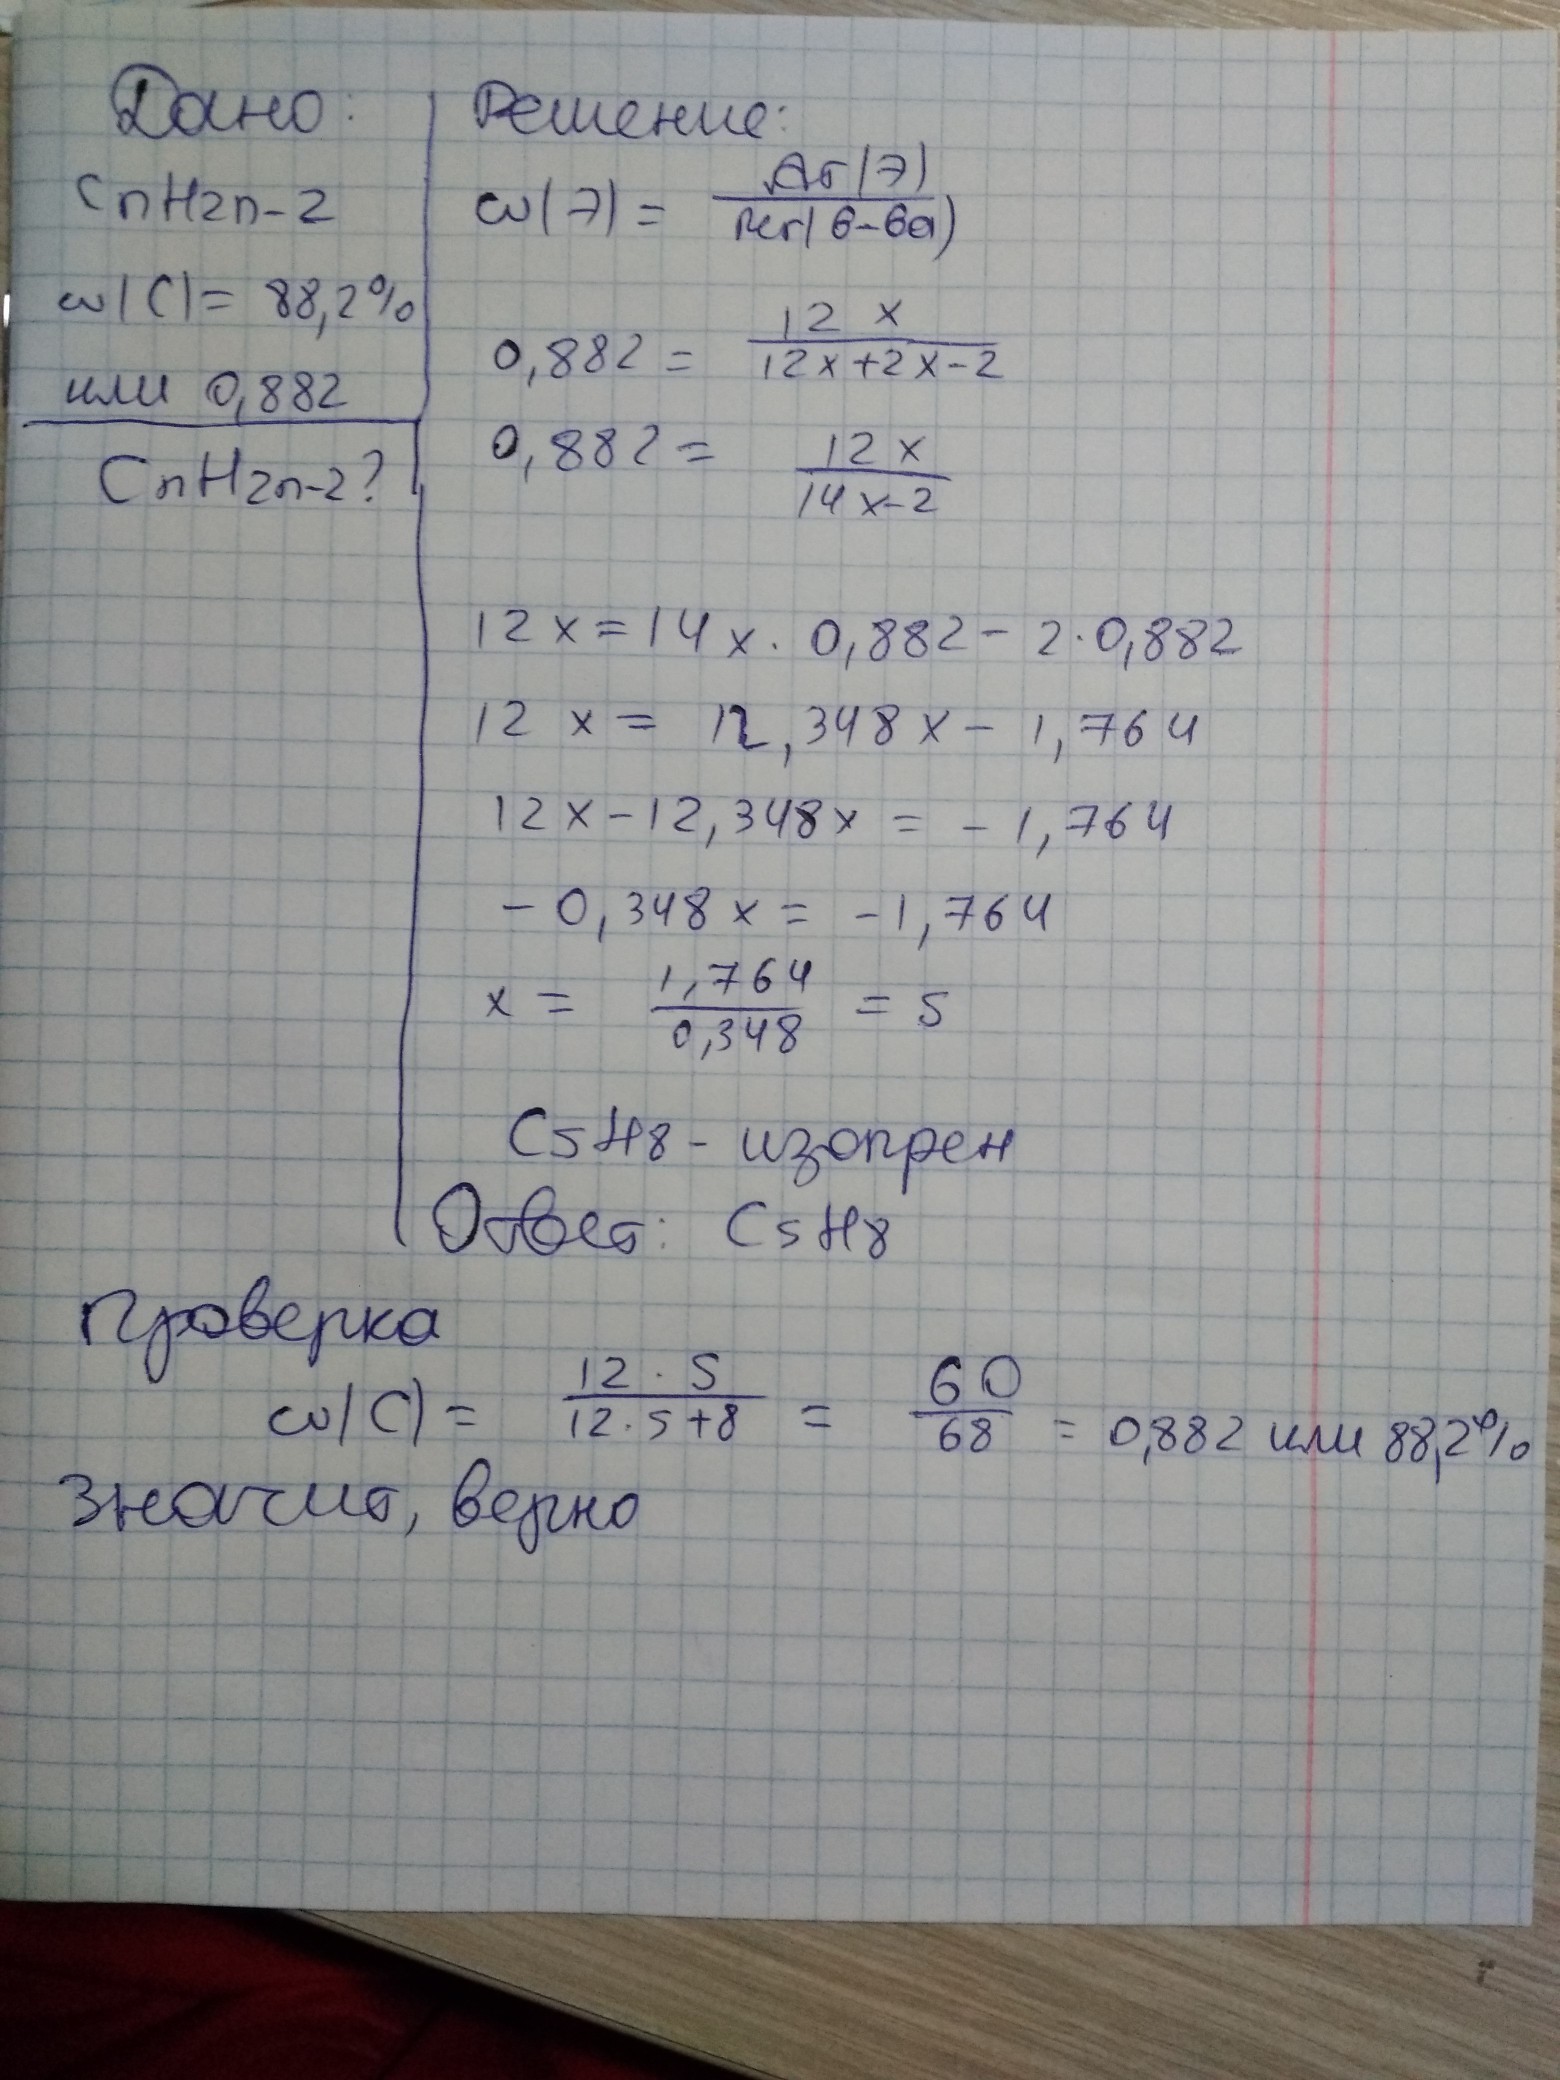 Дано:
CnH2n-2
w(C) = 88,2%
или 0,882
CnH2n-2?
Решение:
w(Э) = Ar(Э) / Mr(в-ва)
0,882 = 12x / 12x+2x-2
0,882 = 12x / 14x-2
12x = 14x · 0,882 - 2 · 0,882
12x = 12,348x - 1,764
12x - 12,348x = - 1,764
- 0,348x = -1,764
x = 1,764 / 0,348 = 5
C5H8 - изопрен
Ответ: C5H8
Проверка
w(C) = 12 · 5 / 12 · 5+8 = 60 / 68 = 0,882 или 88,2%
Значит, верно